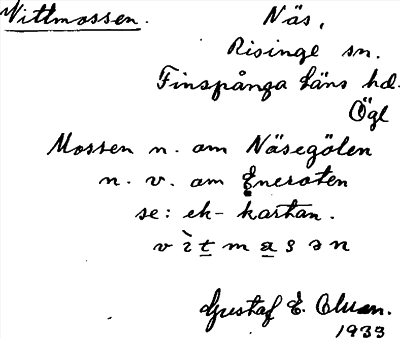 Vittmossen. Näs,
Risinge sn.
Finspånga läns hd.
Ögl
Mossen n. om Näsegölen
n. v. om Eneroten
se: ek-kartan.
v ì t m a s ə n
Gustaf E.
1933